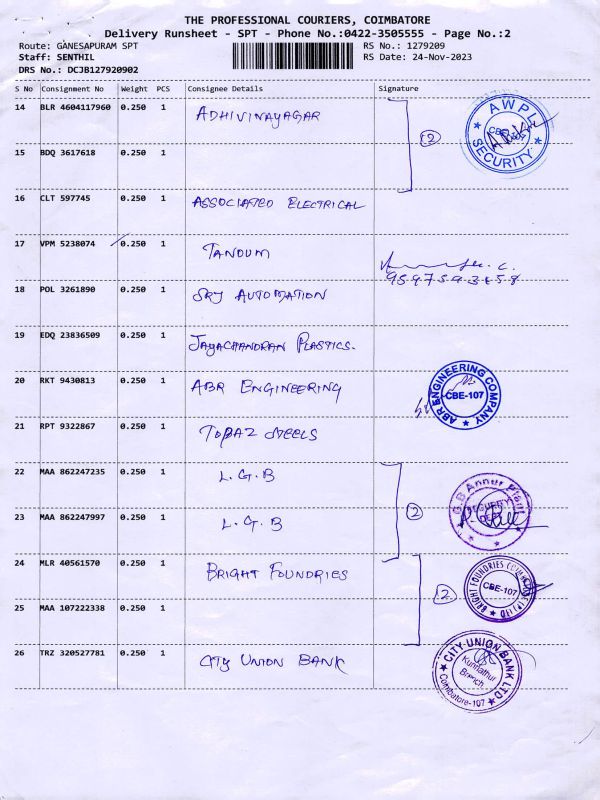 THE PROFESSIONAL COURIERS, COIMBATORE
Delivery Runsheet - SPT - Phone No.:0422-3505555 - Page No.:2
Route: GANESAPURAM SPT
RS No.: 1279209
Staff: SENTHIL
RS Date: 24-Nov-2023
DRS No.: DCJB127920902
S No Consignment No Weight PCS Consignee Details Signature
14 BLR 4604117960 0.250 1 ADHIVINAYAGAR
2
AWPL SECURITY
15 BDQ 3617618 0.250 1
16 CLT 597745 0.250 1 ASSOCIATED ELECTRICAL
17 VPM 5238074 0.250 1 TANDUM
18 POL 3261890 0.250 1 SKY AUTOMATION
19 EDQ 23836509 0.250 1 JAYACHANDRAN PLASTICS.
20 RKT 9430813 0.250 1 ABR ENGINEERING
ABR ENGINEERING COMPANY CBE-107
21 RPT 9322867 0.250 1 TOPAZ STEELS
22 MAA 862247235 0.250 1 L.G.B
2
L.G.B Annur Plant SECURITY
23 MAA 862247997 0.250 1 L.G.B
24 MLR 40561570 0.250 1 BRIGHT FOUNDRIES
2
BRIGHT FOUNDRIES CBE-107
25 MAA 107222338 0.250 1
26 TRZ 320527781 0.250 1 CITY UNION BANK
CITY UNION BANK LTD Kunnathur Branch Coimbatore-107